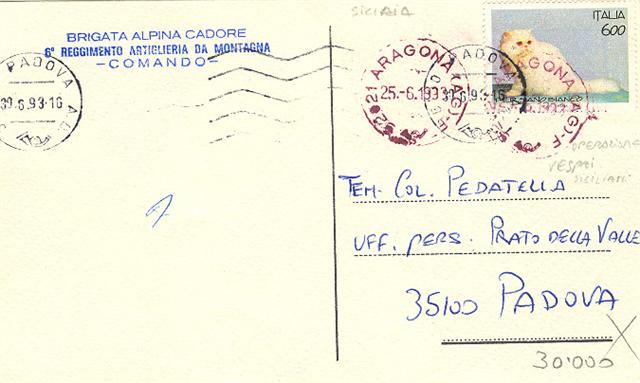 SICILIA
BRIGATA ALPINA CADORE
6° REGGIMENTO ARTIGLIERIA DA MONTAGNA
-COMANDO-
ITALIA
600
PADOVA
30.6.93-16
92021 ARAGONA (AG)-F
25.-6.1993
PADOVA
30.6.93-16
ARAGONA (AG)-F
6.1993
PERSIANO BIANCO
OPERAZIONE
VESPRI
SICILIANI
TEN. COL. PEDATELLA
UFF. PERS. PRATO DELLA VALLE
35100 PADOVA
30.000